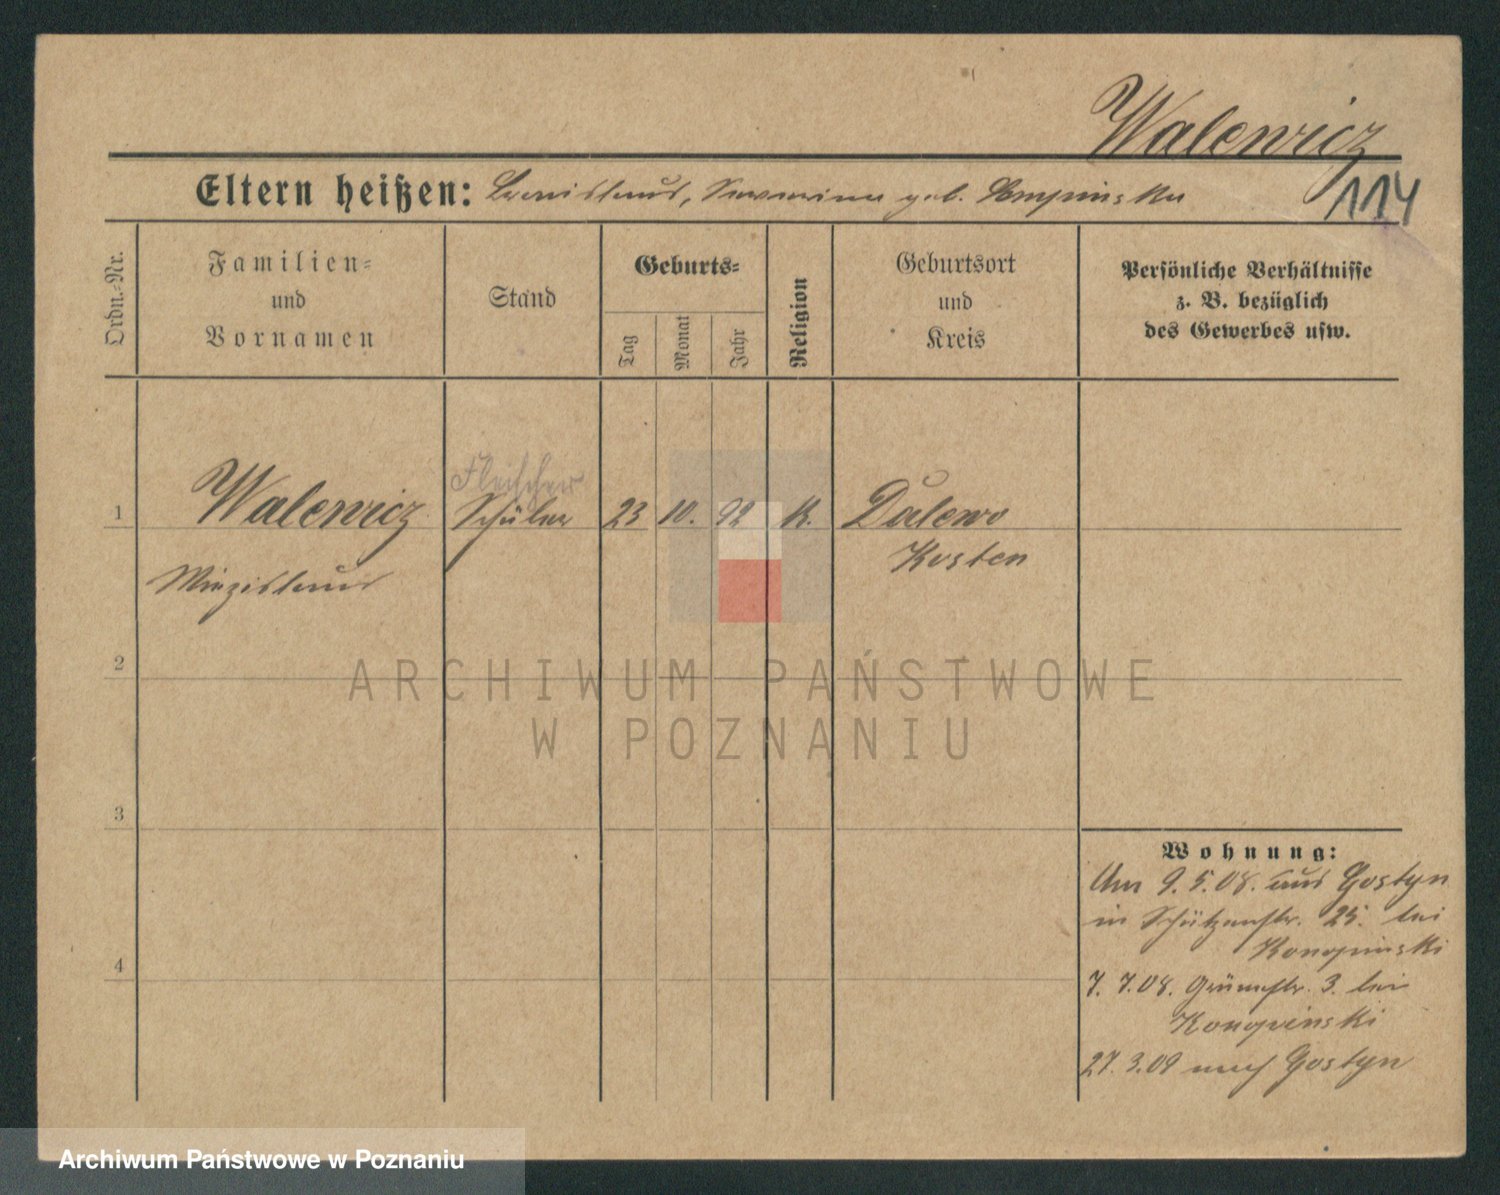 Walewicz
114
Eltern heißen: geb.
Ordn.-Nr.
Familien-
und
Vornamen
Stand
Geburts-
Tag
Monat
Jahr
Religion
Geburtsort
und
Kreis
Persönliche Verhältnisse
z. B. bezüglich
des Gewerbes usw.
Fleischer
1 Walewicz Schüler 23 10. 92 k. Dalewo
Kosten
2
3
4
ARCHIWUM PAŃSTWOWE
W POZNANIU
Wohnung:
Am 9.5.08. aus Gostyn
in Schützenstr. 25. bei
Konopinski
7. 7.08. Grünestr. 3. bei
Konopinski
27.3.09 nach Gostyn
Archiwum Państwowe w Poznaniu